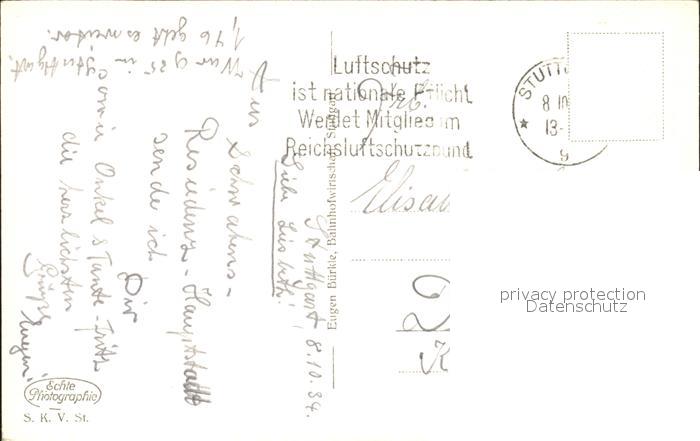 Stuttgart, 8.10.34.
Liebe Liesbeth!
Aus Schwabens-
Residenz-Hauptstadt
sende ich Dir
sowie Onkel & Tante-Fritz
die herzlichsten
Grüße
Eugen.
War 9 25 in Stuttgart,
1,46 geht es weiter.
Eugen Bürkle, Bahnhofwirtschaft Stuttgart
Luftschutz
ist nationale Pflicht
Werdet Mitglied im
Reichsluftschutzbund
STUTT
8 10
13-
9
Elisa
20
K
privacy protection
Datenschutz
Echte
Photographie
S. K. V. St.